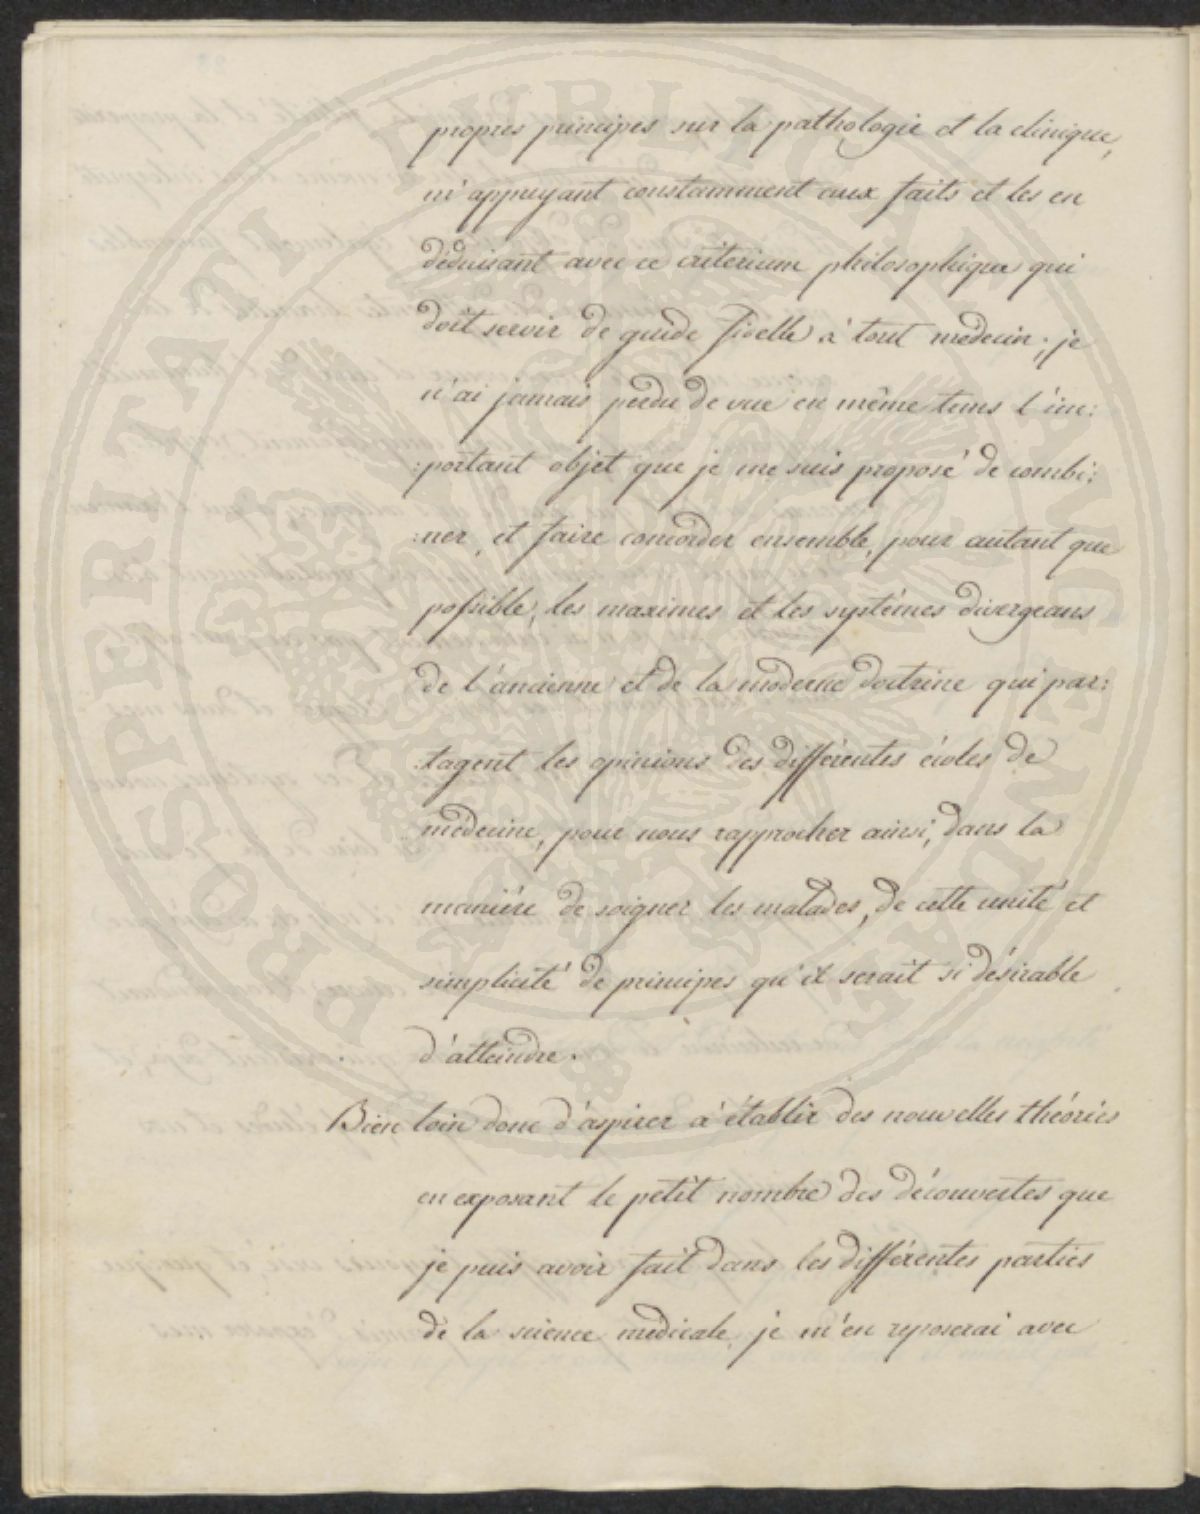 propres principes sur la pathologie et la clinique,
m'appuyant constamment aux faits et les en
déduisant avec ce criterium philosophique qui
doit servir de guide fidelle à tout médecin; je
n'ai jamais perdu de vue en même tems l'im:
:portant objet que je me suis proposé de combi:
:ner, et faire concorder ensemble, pour autant que
possible, les maximes et les systémes divergeans
de l'ancienne et de la moderne doctrine qui par:
:tagent les opinions des différentes écoles de
médecine, pour nous rapprocher ainsi, dans la
maniére de soigner les malades, de cette unité et
simplicité de principes qu'il serait si désirable
d'atteindre.
Bien loin donc d'aspirer à établir des nouvelles théories
en exposant le petit nombre des découvertes que
je puis avoir fait dans les différentes parties
de la science médicale, je m'en reposerai avec
PROSPERITATI PUBLICAE AUGENDAE